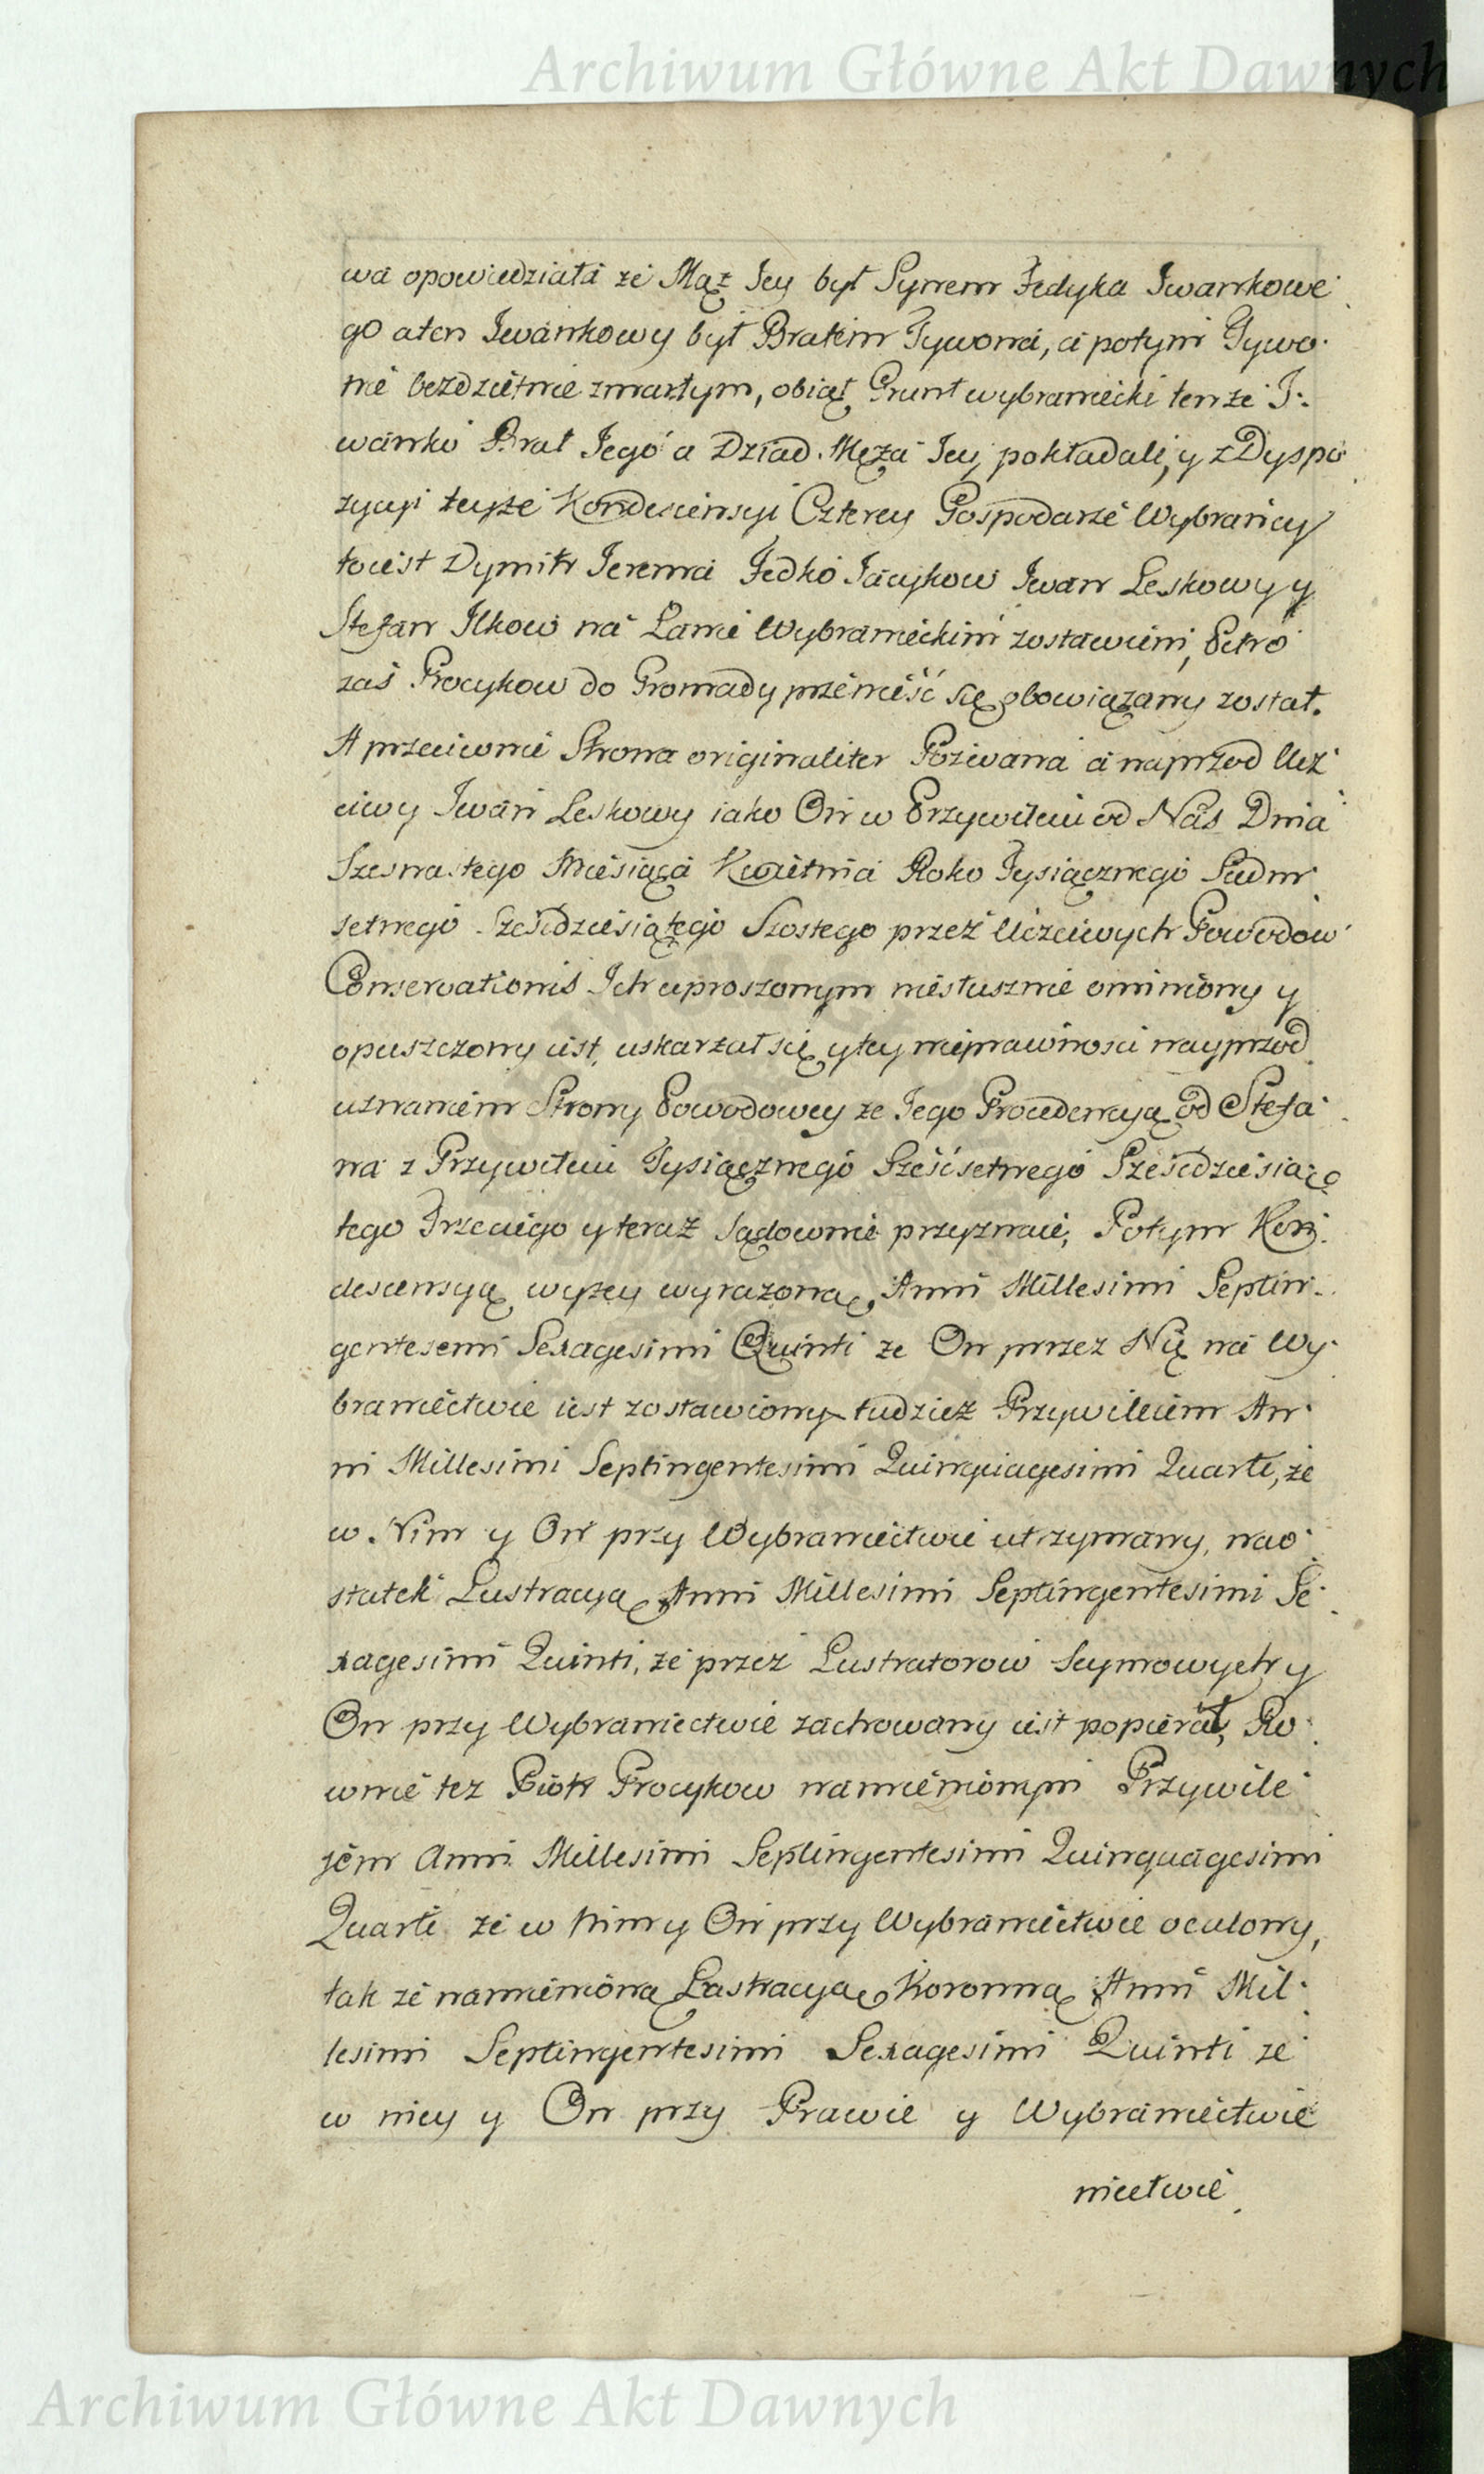 Archiwum Główne Akt Dawnych
wa opowiedziała że Mąż Jey był Synem Fedyka Iwankowe
go aten Iwankowy był Bratem Tywona, a potym Tywo
nie bezdzietnie zmarłym, obiął Grunt wybraniecki tenże I
wanko Brat Jego a Dziad Męża Jey pokładali, y z Dyspo
zycyi teyże Kondescensyi Czterey Gospodarze Wybrańcy
toiest Dymitr Jerema Fedko Jacykow Iwan Leskowy y
Stefan Ilkow na Łanie Wybranieckim zostawieni, Petro
zaś Procykow do Gromady przenieść się obowiązany został.
A przeciwnie Strona originaliter Pozwana a naprzod Ucz
ciwy Iwan Leskowy iako On w Przywileiu od Nas Dnia
Szesnastego Miesiąca Kwietnia Roko Tysiącznego Siedm
setnego Sześdziesiątego Szostego przez Uczciwych Powodow
Conservationis Ich uproszonym niesłusznie ominiony y
opuszczony iest, uskarzał się y tey nieprawnosci nayprzod
uznaniem Strony Powodowey ze Jego Procedencyą od Stefa
na z Przywileiu Tysiącznego Sześćsetnego Sześdziesią
tego Trzeciego y teraz sądownie przyznaie, Potym Kon
descensyą wyżey wyrazoną Anni Millesimi Septin
gentesemi Sexagesimi Quinti ze On przez Nię na Wy
braniectwie iest zostawiony tudziez Przywileiem An
ni Millesimi Septingentesimi Quinquagesimi Quarti, że
w Nim y On przy Wybraniectwie utrzymany, nao
statek Lustracyą Anni Millesimi Septingentesimi Se
xagesimi Quinti, że przez Lustratorow Seymowych y
On przy Wybraniectwie zachowany iest popierał, Ro
wnie tez Piotr Procykow namienionym Przywile
jem Anni Millesimi Septingentesimi Quinquagesimi
Quarti że w Nim y On przy Wybraniectwie ocalony,
tak że namienioną Lastracyą Koronną Anni Mil
lesimi Septingentesimi Sexagesimi Quinti ze
w niey y On przy Prawie y Wybraniectwie
niectwie
Archiwum Główne Akt Dawnych